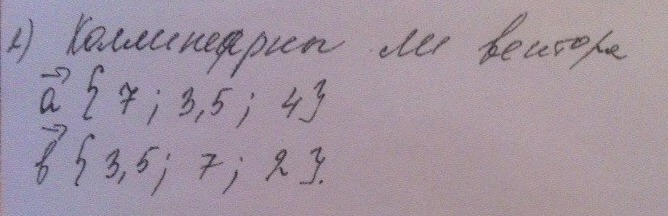 1) Коллинеарны ли вектора
a⃗ { 7 ; 3,5 ; 4 }
b⃗ { 3,5 ; 7 ; 2 }.